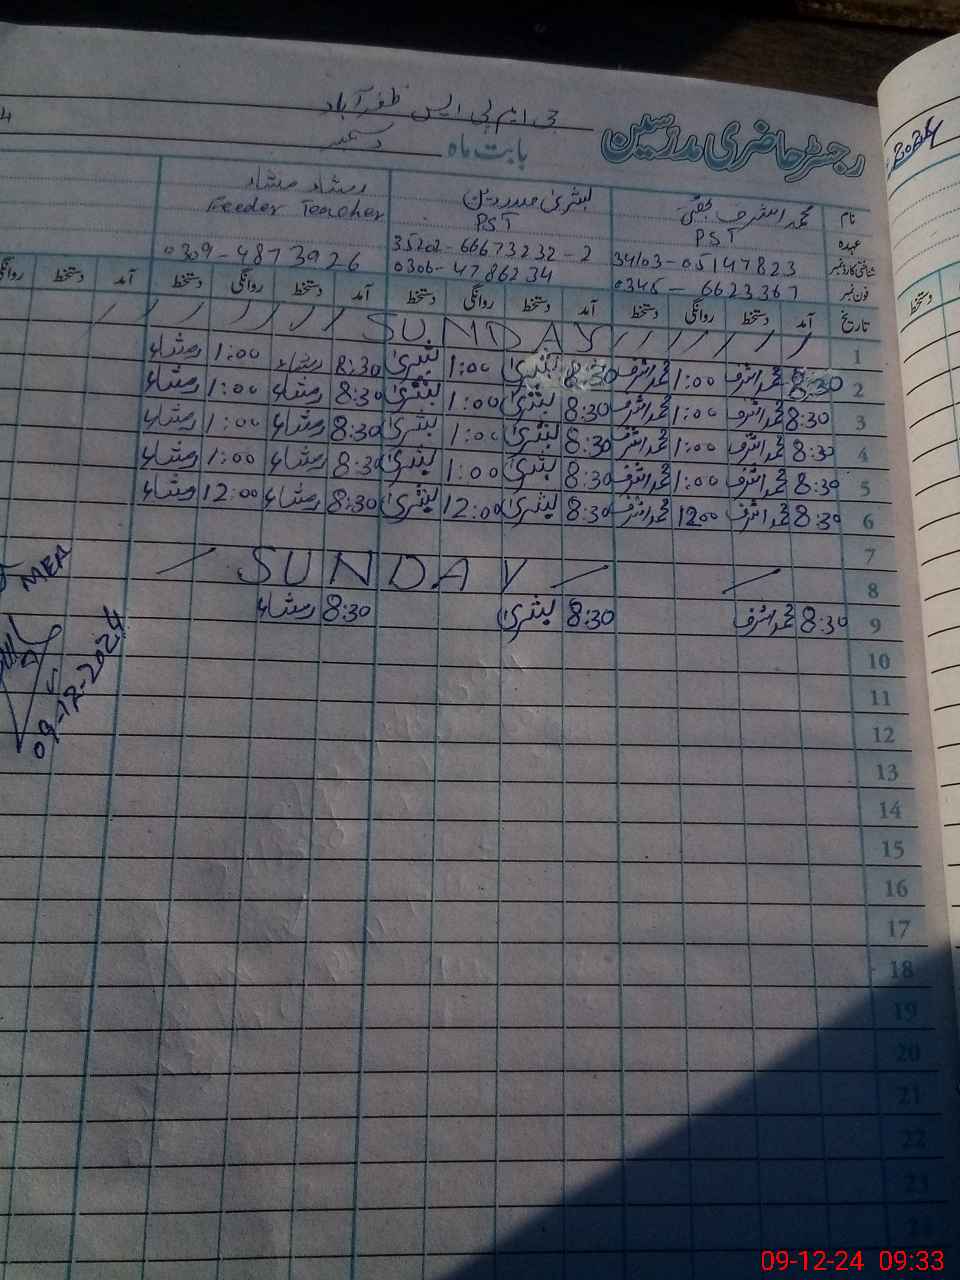 رجسٹر حاضری مدرسین
جی ایم پی ایس ظفر آباد
بابت ماہ دسمبر
2024
نام محمد اشرف بشریٰ رمشاء
عہدہ PST PST Feeder Teacher
شناختی کارڈ نمبر 34103-05147823 35202-66673232-2
فون نمبر 0345-6623367 0306-4786234 0309-4873926
تاریخ آمد دستخط روانگی دستخط آمد دستخط روانگی دستخط آمد دستخط روانگی دستخط آمد دستخط روانگی
دستخط
1 SUNDAY
2 8:30 محمد اشرف 1:00 محمد اشرف 8:30 بشریٰ 1:00 بشریٰ 8:30 رمشاء 1:00 رمشاء
3 8:30 محمد اشرف 1:00 محمد اشرف 8:30 بشریٰ 1:00 بشریٰ 8:30 رمشاء 1:00 رمشاء
4 8:30 محمد اشرف 1:00 محمد اشرف 8:30 بشریٰ 1:00 بشریٰ 8:30 رمشاء 1:00 رمشاء
5 8:30 محمد اشرف 1:00 محمد اشرف 8:30 بشریٰ 1:00 بشریٰ 8:30 رمشاء 1:00 رمشاء
6 8:30 محمد اشرف 1200 محمد اشرف 8:30 بشریٰ 12:00 بشریٰ 8:30 رمشاء 12:00 رمشاء
7
8 SUNDAY
9 8:30 محمد اشرف 8:30 بشریٰ 8:30 رمشاء
MEA
09-12-2024
10
11
12
13
14
15
16
17
18
19
20
21
22
23
24
09-12-24 09:33